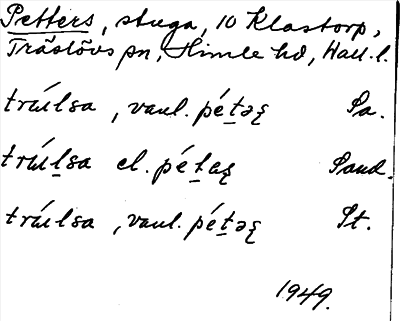 Petters, stuga, 10 Klastorp,
Träslövs pn, Himle hd, Hall. l.
trúlsa, vanl. pé́təʂ Sa.
trúlsa el. pétaʂ Sand.
trúlsa, vanl. pétəʂ St.
1949.